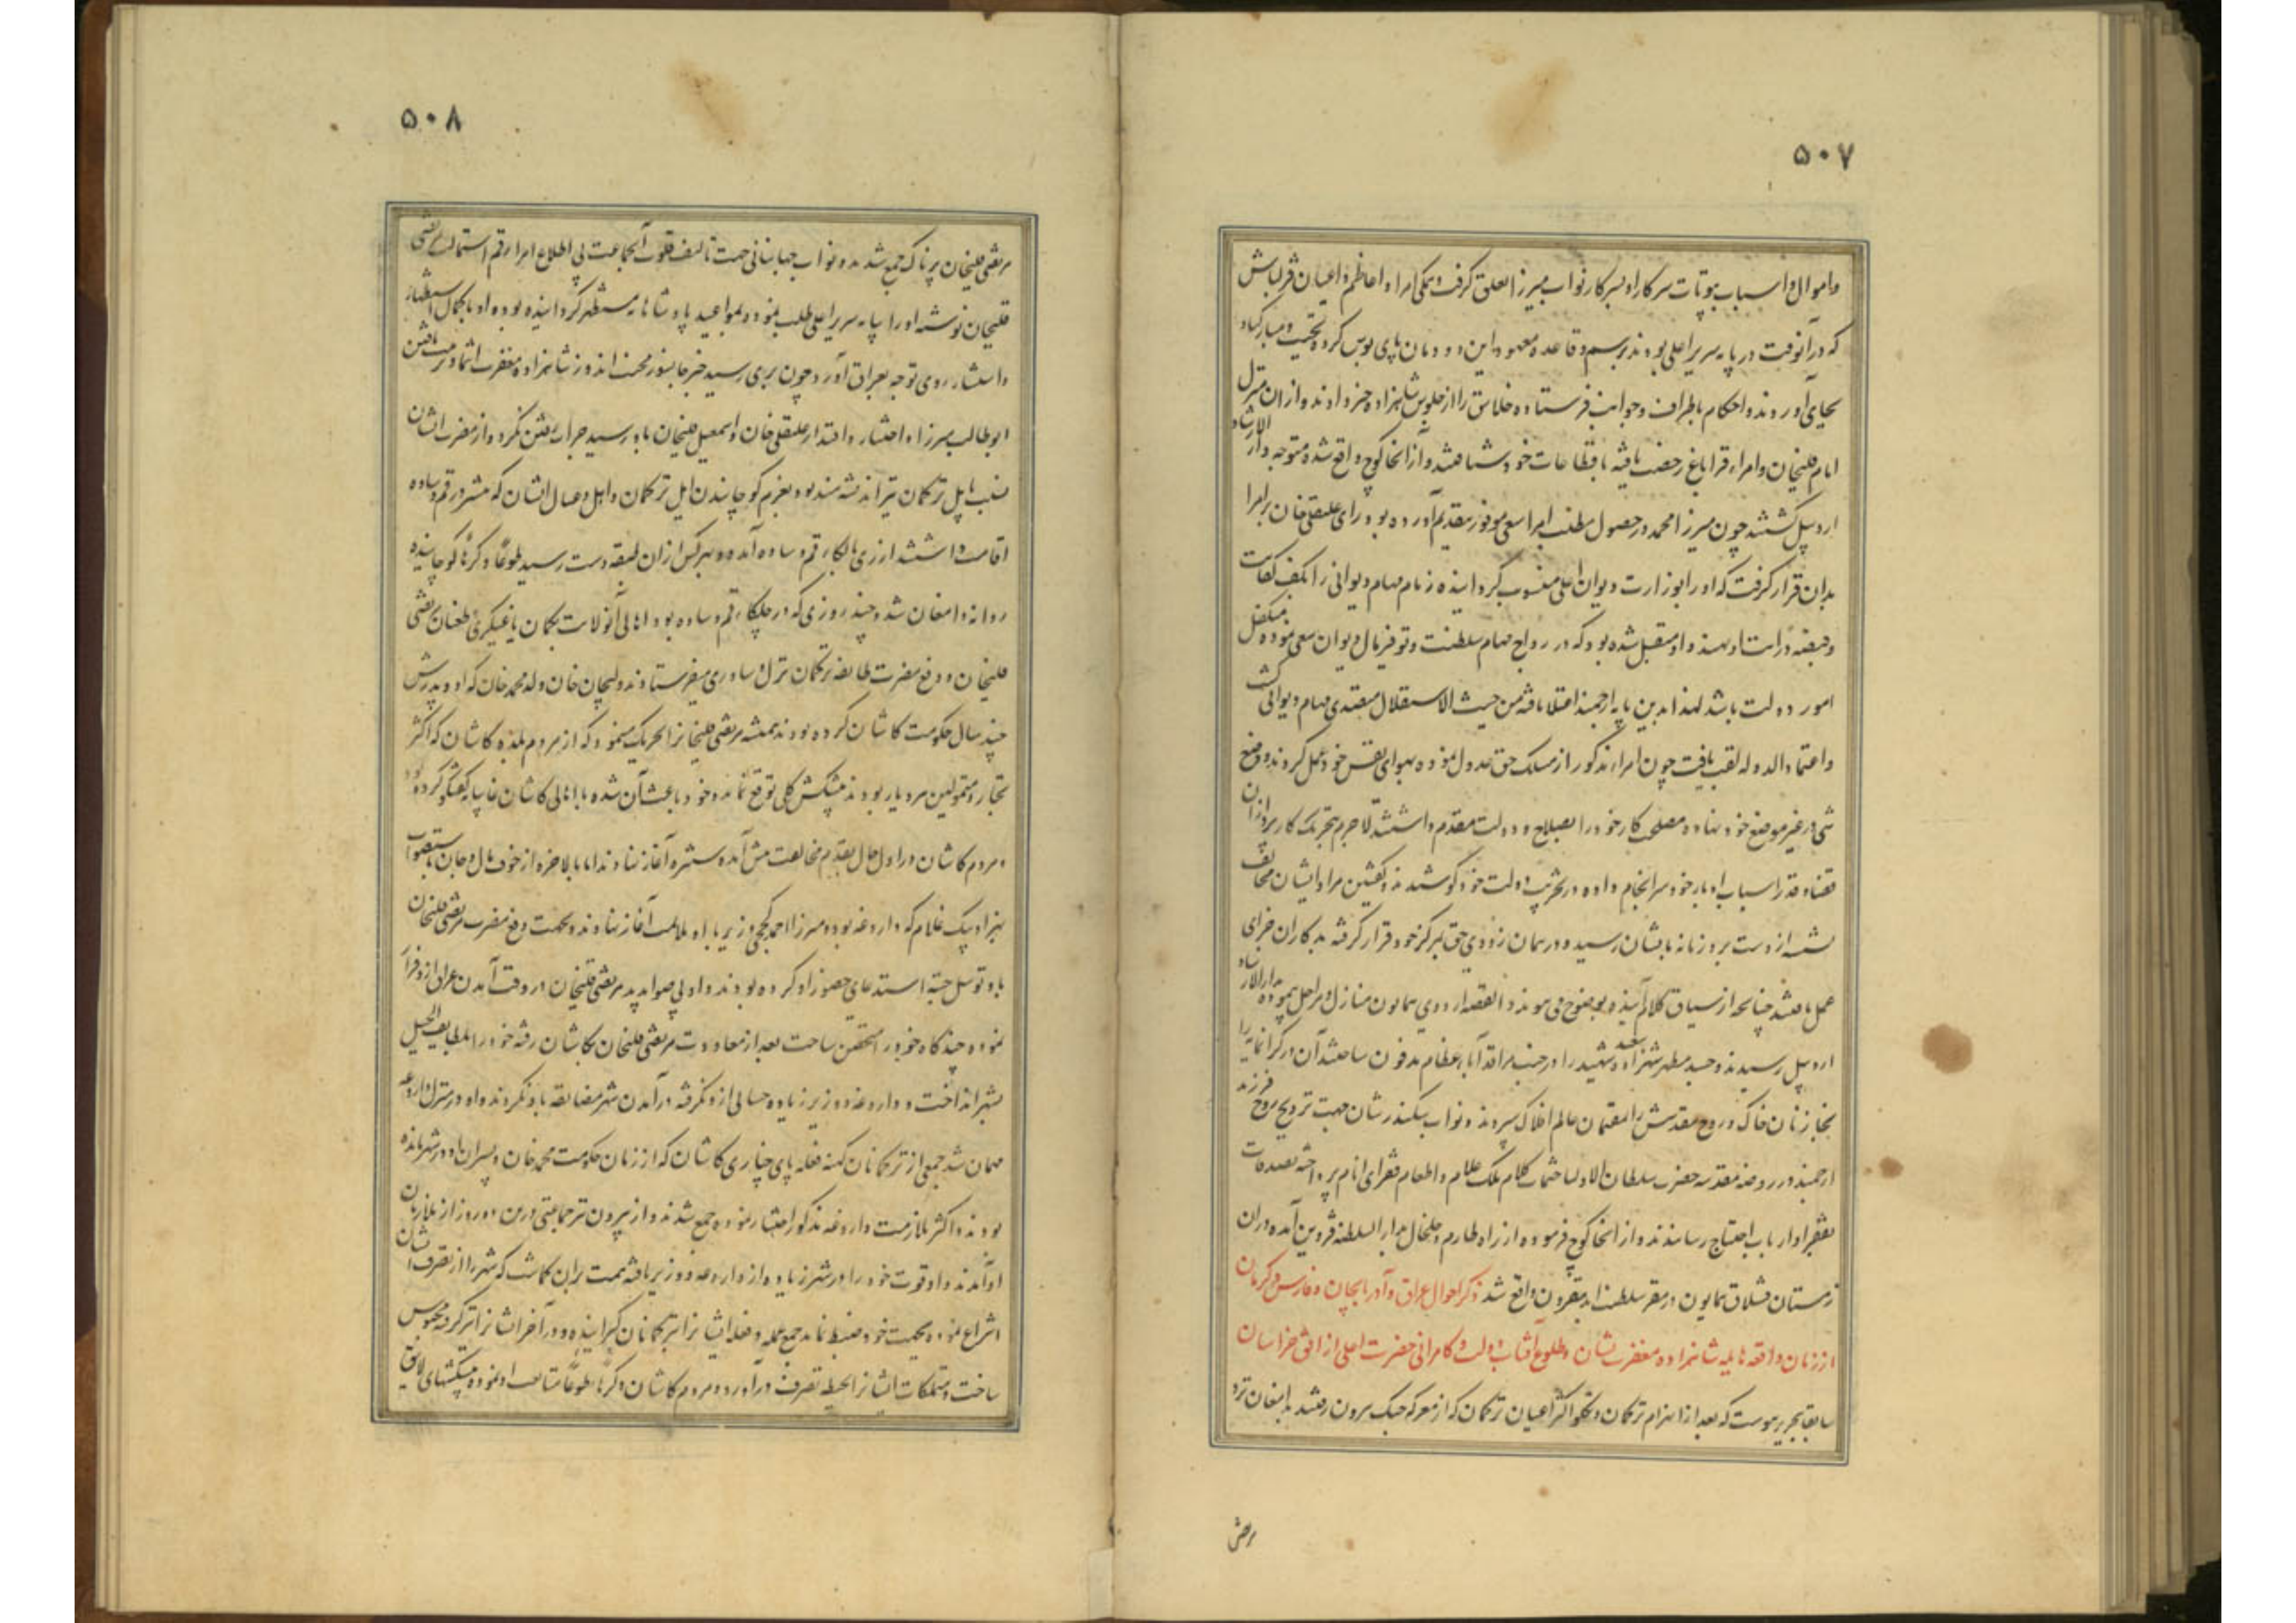 ۵۰۷
واموال و اسباب بیوتات سرکار او بسرکار نواب میرزا تعلق گرفت و همگی امرا و اعاظم و اعیان قزلباش
که در آنوقت در پایه سریر اعلی بودند برسم و قاعده معهود این دودمان پای بوس کرده تحیت و مبارکباد
بجای آوردند و احکام باطراف و جوانب فرستاده خلایق را از جلوس شاهزاده خبر دادند و از ان منزل
امام قلیخان و امراء قراباغ رخصت یافته باقطاعات خود شتافتند و از آنجا کوچ واقع شده متوجه دار الارشاد
اردبیل گشتند چون میرزا محمد در حصول مطلب امرا سعی موفور بتقدیم آورده بود رای علیقلی خان و امرا
بدان قرار گرفت که او را بوزارت دیوان اعلی منسوب گردانیده زمام مهام دیوانی را بکف کفایت
و قبضه درایت او نهند و او متقبل شده بود که در رواج مهام سلطنت و توفیر مال دیوان سعی نموده متکفل
امور دولت باشد لهذا بدین پایه ارجمند اعتلا یافته من حیث الاستقلال متصدی مهام دیوانی گشت
و اعتماد الدوله لقب یافت چون امراء مذکور از مسلک حق عدول نموده بهوای نفس خود عمل کردند و وضع
شی در غیر موضع خود نهاده مصلحت کار خود را بصلاح دولت مقدم داشتند لاجرم بتحریک کارپردازان
قضا و قدر اسباب ادبار خود سرانجام داده در تخریب دولت خود کوشیدند و نقش مراد ایشان مخالف
نشسته از دست برد زمانه بایشان رسید و در همان زودی حق بمرکز خود قرار گرفته بدکاران جزای
عمل یافتند چنانچه از سیاق کلام آینده بوضوح می پیوندد القصه اردوی همایون منازل و مراحل پیموده بدار الارشاد
اردبیل رسیدند و جسد مطهر شهزاده سعید شهید را در جنب مراقد آباء عظام مدفون ساختند آن در گرانمایه را
بخازنان خاک و روح مقدسش را بمقیمان عالم افلاک سپردند و نواب سکندر شان جهت ترویح روح فرزند
ارجمند در روضه مقدسه حضرت سلطان الاولیا ختمات کلام ملک علام و اطعام فقرای انام پرداخته تصدقات
بفقرا و ارباب احتیاج رسانیدند و از آنجا کوچ فرموده از راه طارم و خلخال بدار السلطنه قزوین آمده در ان
زمستان قشلاق همایون در مقر سلطنت ابد مقرون واقع شد ذکر احوال عراق و آذربایجان و فارس و کرمان
از زمان واقعه هایله شاهزاده مغفرت نشان و طلوع آفتاب دولت و کامرانی حضرت اعلی از افق خراسان
سابقا بتحریر پیوست که بعد از انهزام ترکمان و تکلو اکثر اعیان ترکمان که از معرکه جنگ بیرون رفتند بدامغان نزد
مرتضی
۵۰۸
مرتضی قلیخان پرناک جمع شدند و نواب جهانبانی جهت تالیف قلوب آنجماعت بی اطلاع امرا رقم استمالت بمرتضی
قلیخان نوشته او را بپایه سریر اعلی طلب نموده و بمواعید پادشاهانه مستظهر گردانیده بود و او با کمال استظهار
و استبشار روی توجه بعراق آورد چون بری رسید خبر جانسوز محنت اندوز شاهزاده مغفرت انتما و مرتبت یافتن
ابوطالب میرزا و اختیار و اقتدار علیقلی خان و اسمعیل قلیخان باو رسید جرات رفتن نکرد و از مضرت ایشان
نسبت بایل ترکمان نیز اندیشه مند بود بعزم کوچانیدن ایل ترکمان و اهل و عیال ایشان که در قم و ساوه
اقامت داشتند از ری بالکاء قم و ساوه آمده و هر کس از ان طبقه بدست رسید طوعا و کرها کوچانیده
روانه دامغان شد و چند روزی که در الکاء قم و ساوه بود اهالی آنولایت بگمان یاغیگری و طغیان مرتضی
قلیخان و دفع مضرت طایفه ترکمان نزل و ساوری میفرستادند ولیجان خان ولد محمد خان که او و پدرش
چند سال حکومت کاشان کرده بودند همیشه مرتضی قلیخانرا تحریک مینمود که از مردم بلده کاشان که اکثر
تجار و متمولین هر دیار بودند پیشکش کلی توقع نماید و خود باعث آن شده با اهالی کاشان غایبانه گفتگو کرده بود
و مردم کاشان در اول حال بقدم مخالفت پیش آمده ستیزه آغاز نهادند اما بالاخره از خوف مال و جان باستصواب
بهزاد بیک غلام که داروغه بود و میرزا احمد کججی وزیر با او ملایمت آغاز نهادند و بجهت دفع مضرت مرتضی قلیخان
باو توسل جسته استدعای حضور او کرده بودند و او بی صوابدید مرتضی قلیخان در وقت آمدن عراق از و فرار
نموده چند گاه خود را متحصن ساخت بعد از معاودت مرتضی قلیخان بکاشان رفته خود را بلطایف الحیل
بشهر انداخت و داروغه و وزیر زیاده حسابی از و نگرفته در آمدن شهر مضایقه با او نکردند و او در منزل داروغه
مهمان شد جمعی از ترکمانان کهنه فعله پای چناری کاشان که از زمان حکومت محمد خان و پسران او در شهر مانده
بودند و اکثر ملازمت داروغه مذکور اختیار نموده جمع شدند و از بیرون نیز جماعتی در من دو روز از ملازمان
او آمدند و او قوت خود را در شهر زیاده از داروغه و وزیر یافته همت بران گماشت که شهر را از تصرف ایشان
انتزاع نموده بجهت خود ضبط نماید جمع عمله و فعله ایشانرا بترکمانان گیرانیده و در آخر ایشانرا نیز گرفته محبوس
ساخت و متملکات ایشانرا بحیطه تصرف درآورد و مردم کاشان کرها و طوعا متابعت او نموده پیشکشهای لایق